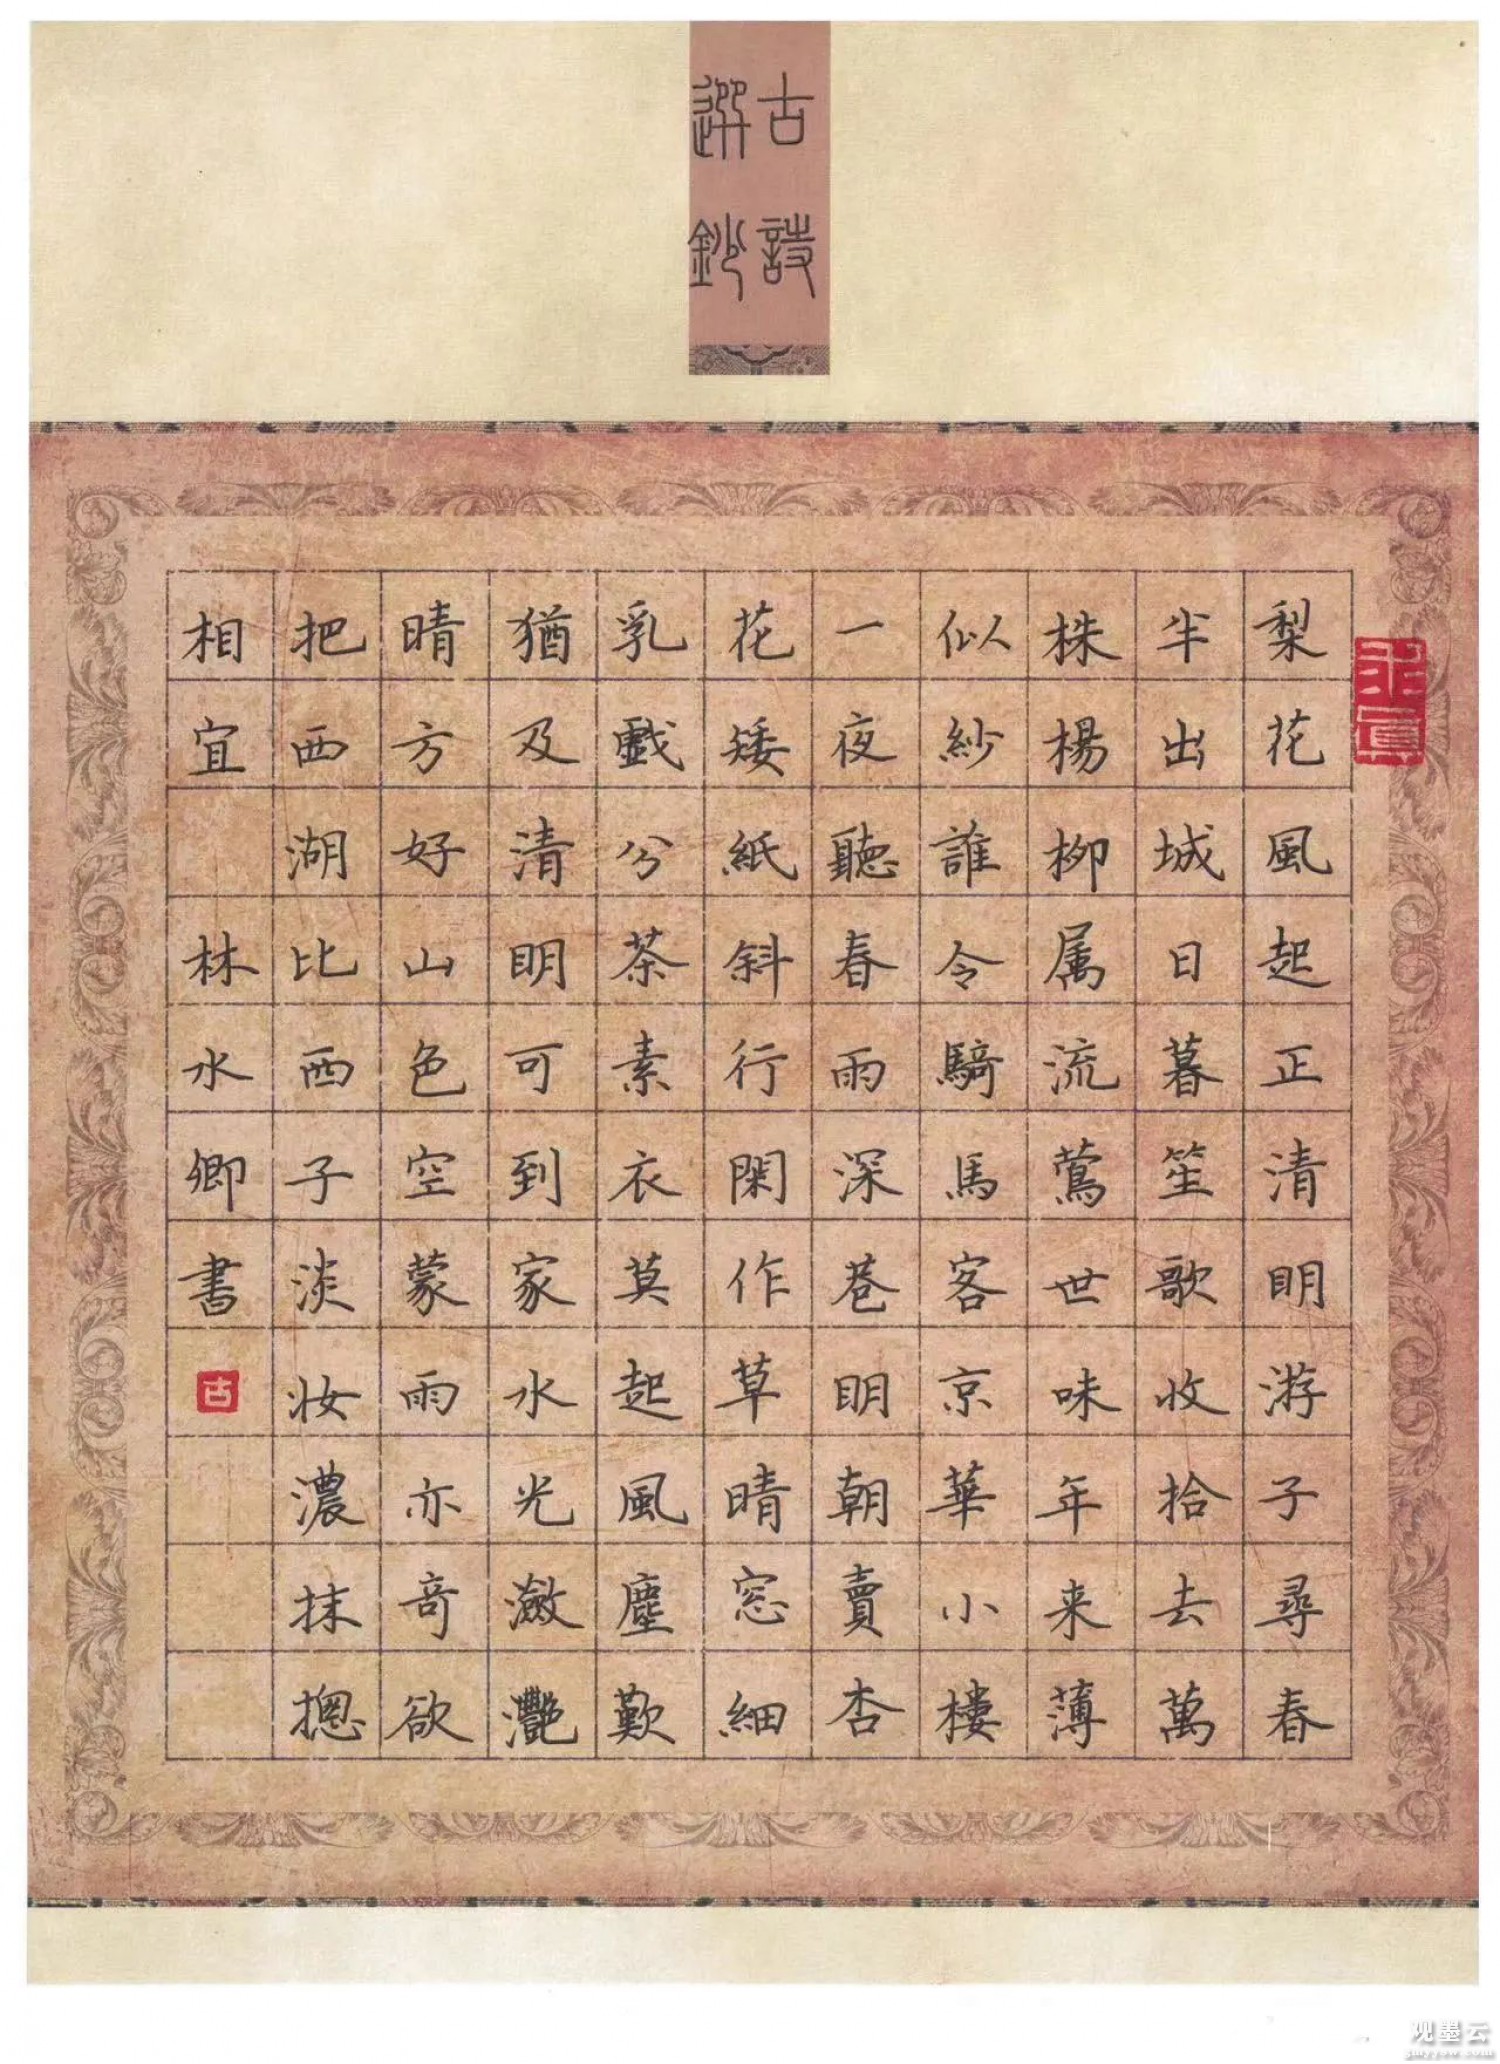 古詩
選鈔
梨花風起正清明游子尋春
半出城日暮笙歌收拾去萬
株楊柳属流鶯世味年来薄
似紗誰令騎馬客京華小樓
一夜聽春雨深巷明朝賣杏
花矮紙斜行閑作草晴窓細
乳戲分茶素衣莫起風塵歎
猶及清明可到家水光瀲灩
晴方好山色空蒙雨亦奇欲
把西湖比西子淡妆濃抹摠
相宜 林水卿書
古
观墨云